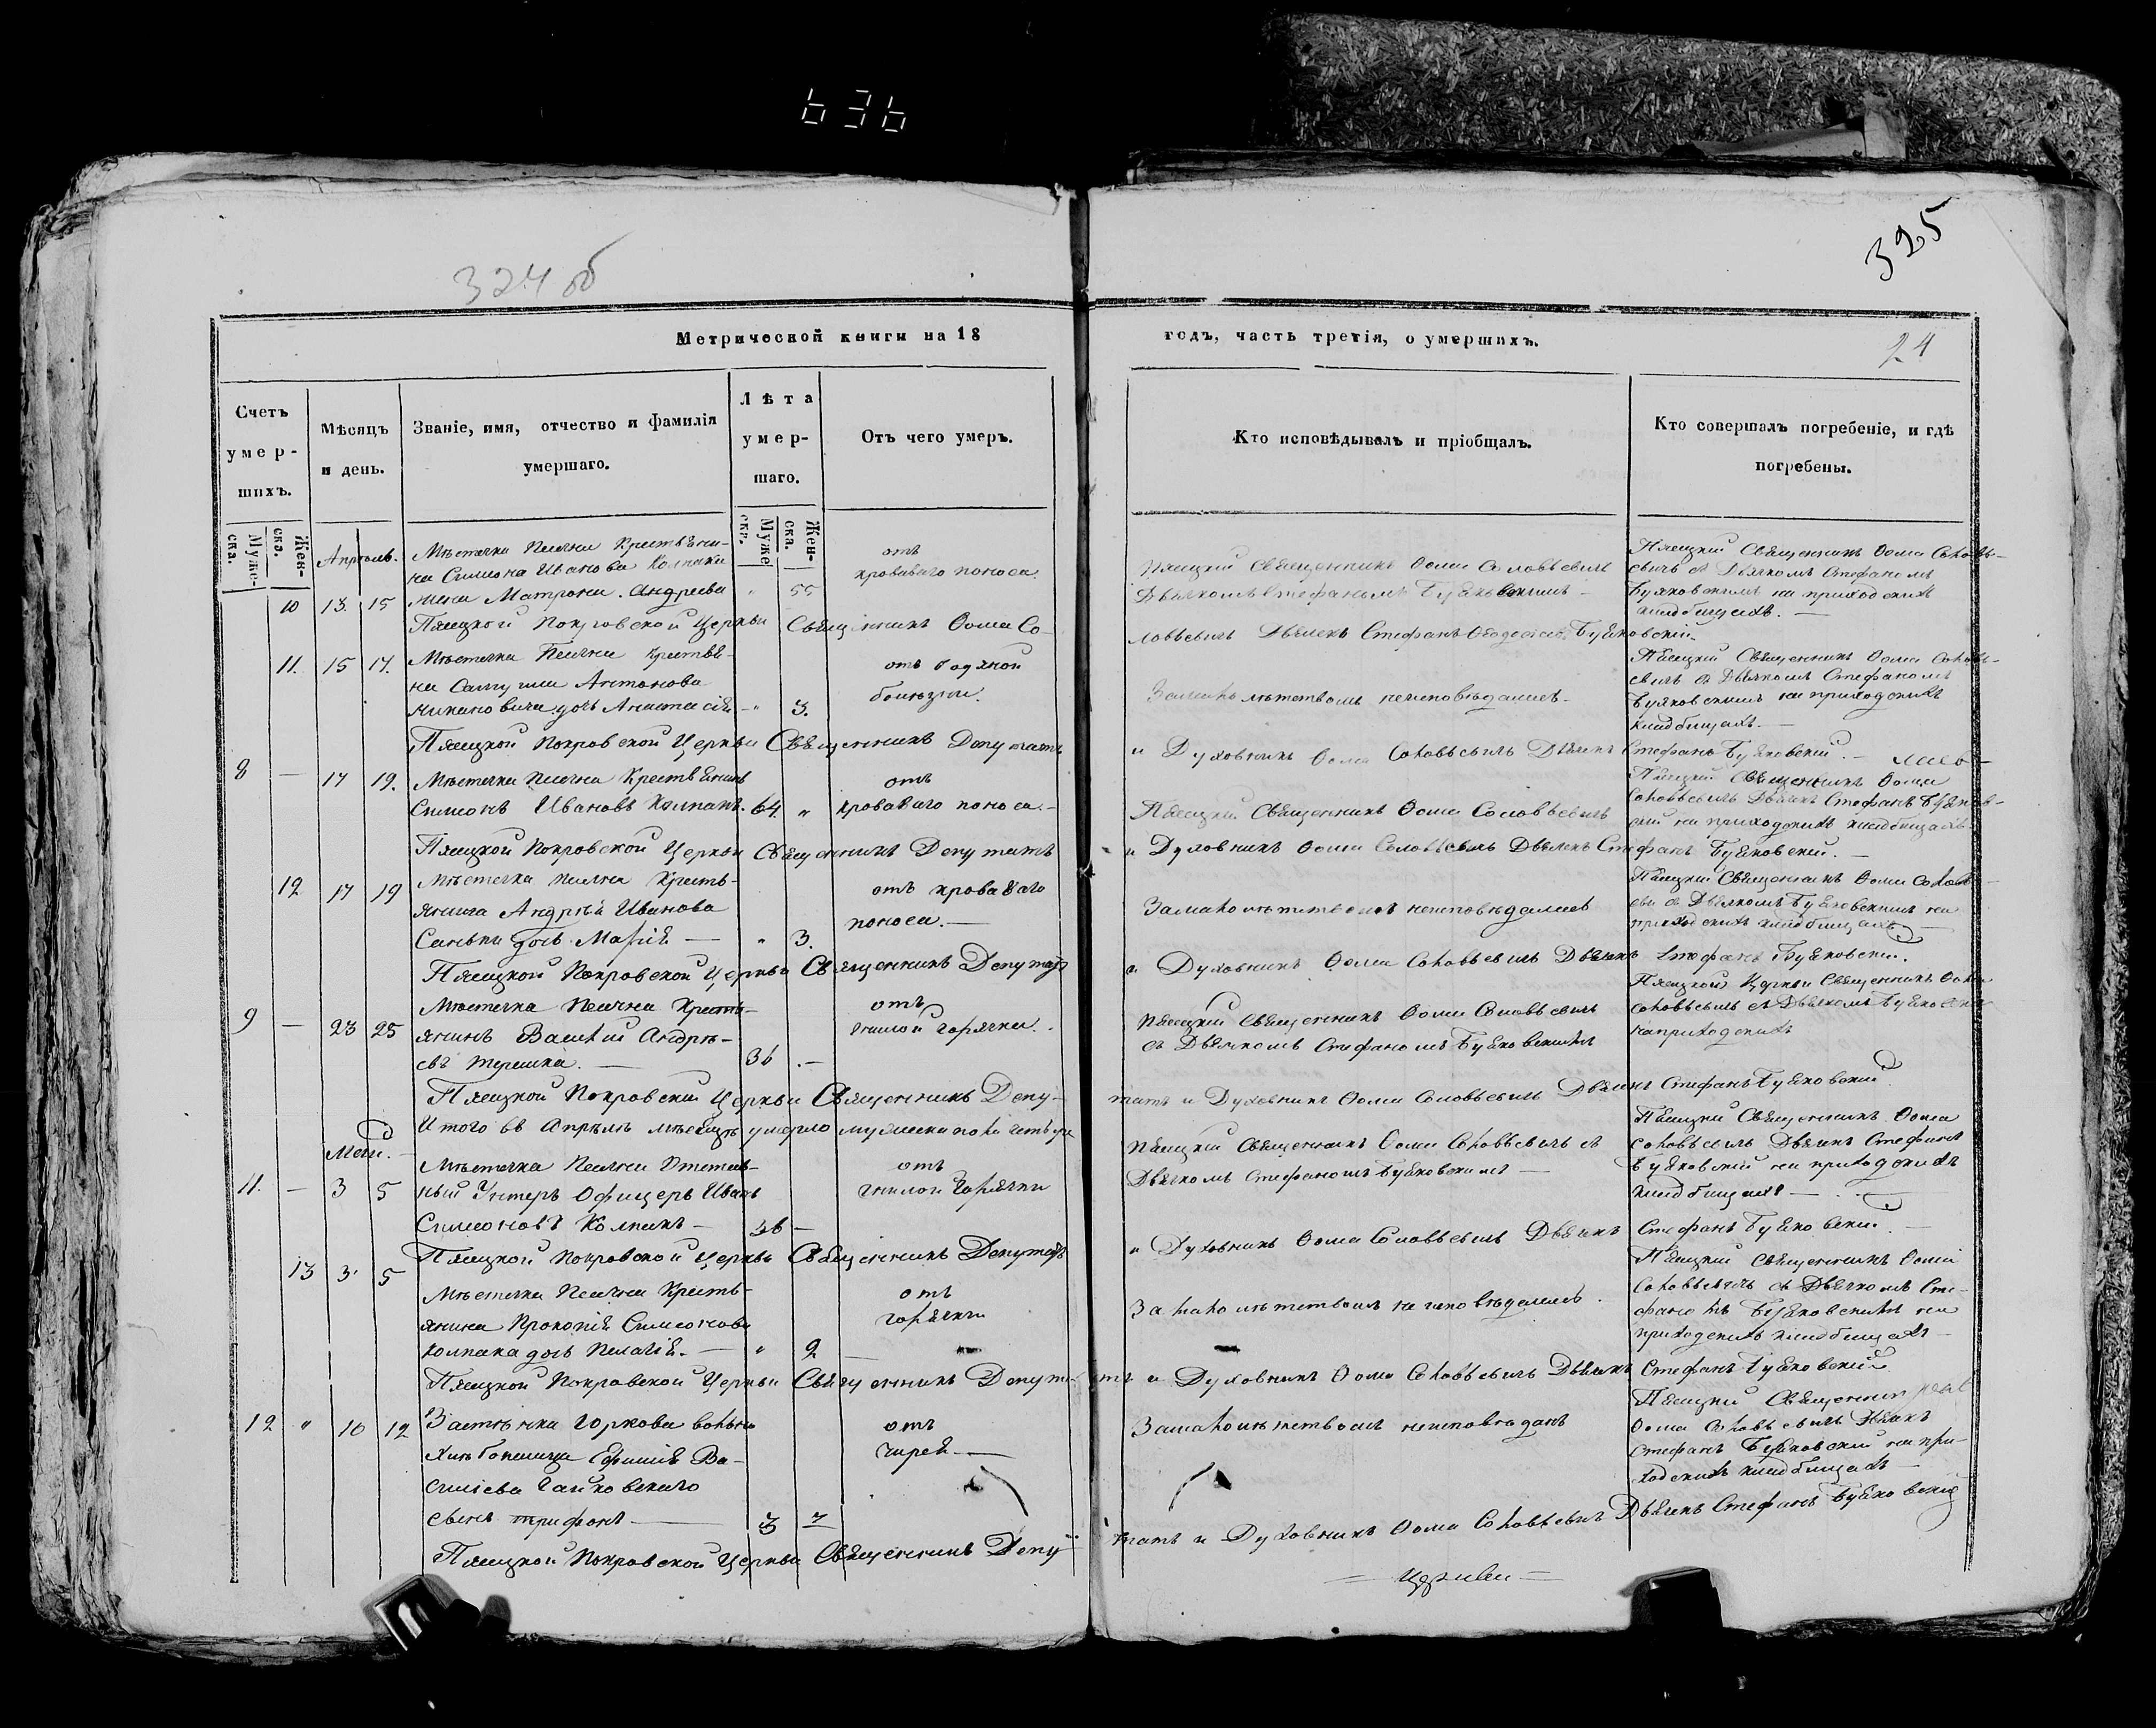 636
324 об
325
Метрической книги на 18 годъ, часть третія, о умершихъ.
24
Счетъ умер-шихъ.
Муже-ска.
Жен-ска.
Мѣсяцъ и день.
Званіе, имя, отчество и фамилія умершаго.
Лѣта умер-шаго.
Муже ска.
Жен-ска.
Отъ чего умеръ.
Кто исповѣдывалъ и пріобщалъ.
Кто совершалъ погребеніе, и гдѣ погребены.
Апрѣль.
10 13. 15
Мѣстечка Песчки Крестьяни-
на Симеона Иванова Колпака
жена Матрона Андреева " 55
отъ
кроваваго поноса.
Пяецкій Священникъ Ѳома Соловьевичъ
Дьячкомъ Стефаномъ Буяковскимъ
Священникъ Ѳома Соловь-
евичъ съ Дьячкомъ Стефаномъ
Буяковскимъ на приходскихъ
кладбищахъ.
Покровской Церкви Священникъ Ѳома Со-
ловьевичъ Дьячекъ Стефанъ Буяковскій
11. 15 17.
Крестья-
на Антонова
дочь Анастасія " 3.
отъ водяной
болезни.
За малолѣтствомъ неисповѣдалась
Священникъ Ѳома Соловь-
евичъ съ Дьячкомъ Стефаномъ
Буяковскимъ на приходскихъ
кладбищахъ.
Покровской Церкви Священникъ Депутатъ
и Духовникъ Ѳома Соловьевичъ Дьячекъ Стефанъ Буяковскій.
8 — 17 19.
Крестьянинъ
Симеонъ Ивановъ Колпакъ. 64. "
отъ
кроваваго поноса.
Священникъ Ѳома Соловьевичъ
Священникъ Ѳома
Соловьевичъ Дьячекъ Стефанъ Буяков-
скій на приходскихъ кладбищахъ
Покровской Церкви Священникъ Депутатъ
и Духовникъ Ѳома Соловьевичъ Дьячекъ Стефанъ Буяковскій.
12 17 19
Кресть-
янина Андрея Иванова
дочь Марія — " 3.
отъ кроваваго
поноса.
За малолѣтствомъ неисповѣдалась
Священникъ Ѳома Соловь-
Дьячкомъ Буяковскимъ на
приходскихъ кладбищахъ
Покровской Церкви Священникъ Депутатъ
и Духовникъ Ѳома Соловьевичъ Дьячекъ Стефанъ Буяковскій.
9 — 23 25
Кресть-
янинъ Василій Андре-
евъ Терешка. — 36 —
отъ
гнилой горячки.
Священникъ Ѳома Соловьевичъ
съ Дьячкомъ Стефаномъ Буяковскимъ
Церкви Священникъ Ѳома
Соловьевичъ съ Дьячкомъ
на приходскихъ
Покровской Церкви Священникъ Депу-
татъ и Духовникъ Ѳома Соловьевичъ Дьячекъ Стефанъ Буяковскій
Итого въ Апрѣлѣ мѣсяцѣ умерло мужеска пола четыре
Май.
11. — 3 5
Отстав-
ный Унтеръ Офицеръ Иванъ
Симеоновъ Колпакъ — 36 —
отъ
гнилой горячки
Священникъ Ѳома Соловьевичъ съ
Дьячкомъ Стефаномъ Буяковскимъ —
Священникъ Ѳома
Соловьевичъ Дьячекъ Стефанъ
Буяковскій на приходскихъ
кладбищахъ —
Покровской Церкви Священникъ Депутатъ
и Духовникъ Ѳома Соловьевичъ Дьячекъ Стефанъ Буяковскій. —
13 3 5
Кресть-
янина Прокопія Симеонова
Колпака дочь Пелагія. — " 2
отъ
горячки
За малолѣтствомъ не исповѣдалась.
Священникъ Ѳома
Соловьевичъ съ Дьячкомъ Сте-
фаномъ Буяковскимъ на
приходскихъ кладбищахъ —
Покровской Церкви Священникъ Депута-
тъ и Духовникъ Ѳома Соловьевичъ Дьячекъ Стефанъ Буяковскій
12 " 10 12
Застѣнка вольна
Хлѣбопашца Ефимія Ва-
силіева Гайковскаго
сынъ Трифонъ — 3
отъ
чирей —
За малолѣтствомъ неисповѣданъ
Священникъ
Ѳома Соловьевичъ Дьячекъ
Стефанъ Буяковскій на при-
ходскихъ кладбищахъ —
Покровской Церкви Священникъ Депу-
татъ и Духовникъ Ѳома Соловьевичъ Дьячекъ Стефанъ Буяковскій
= Церкви =